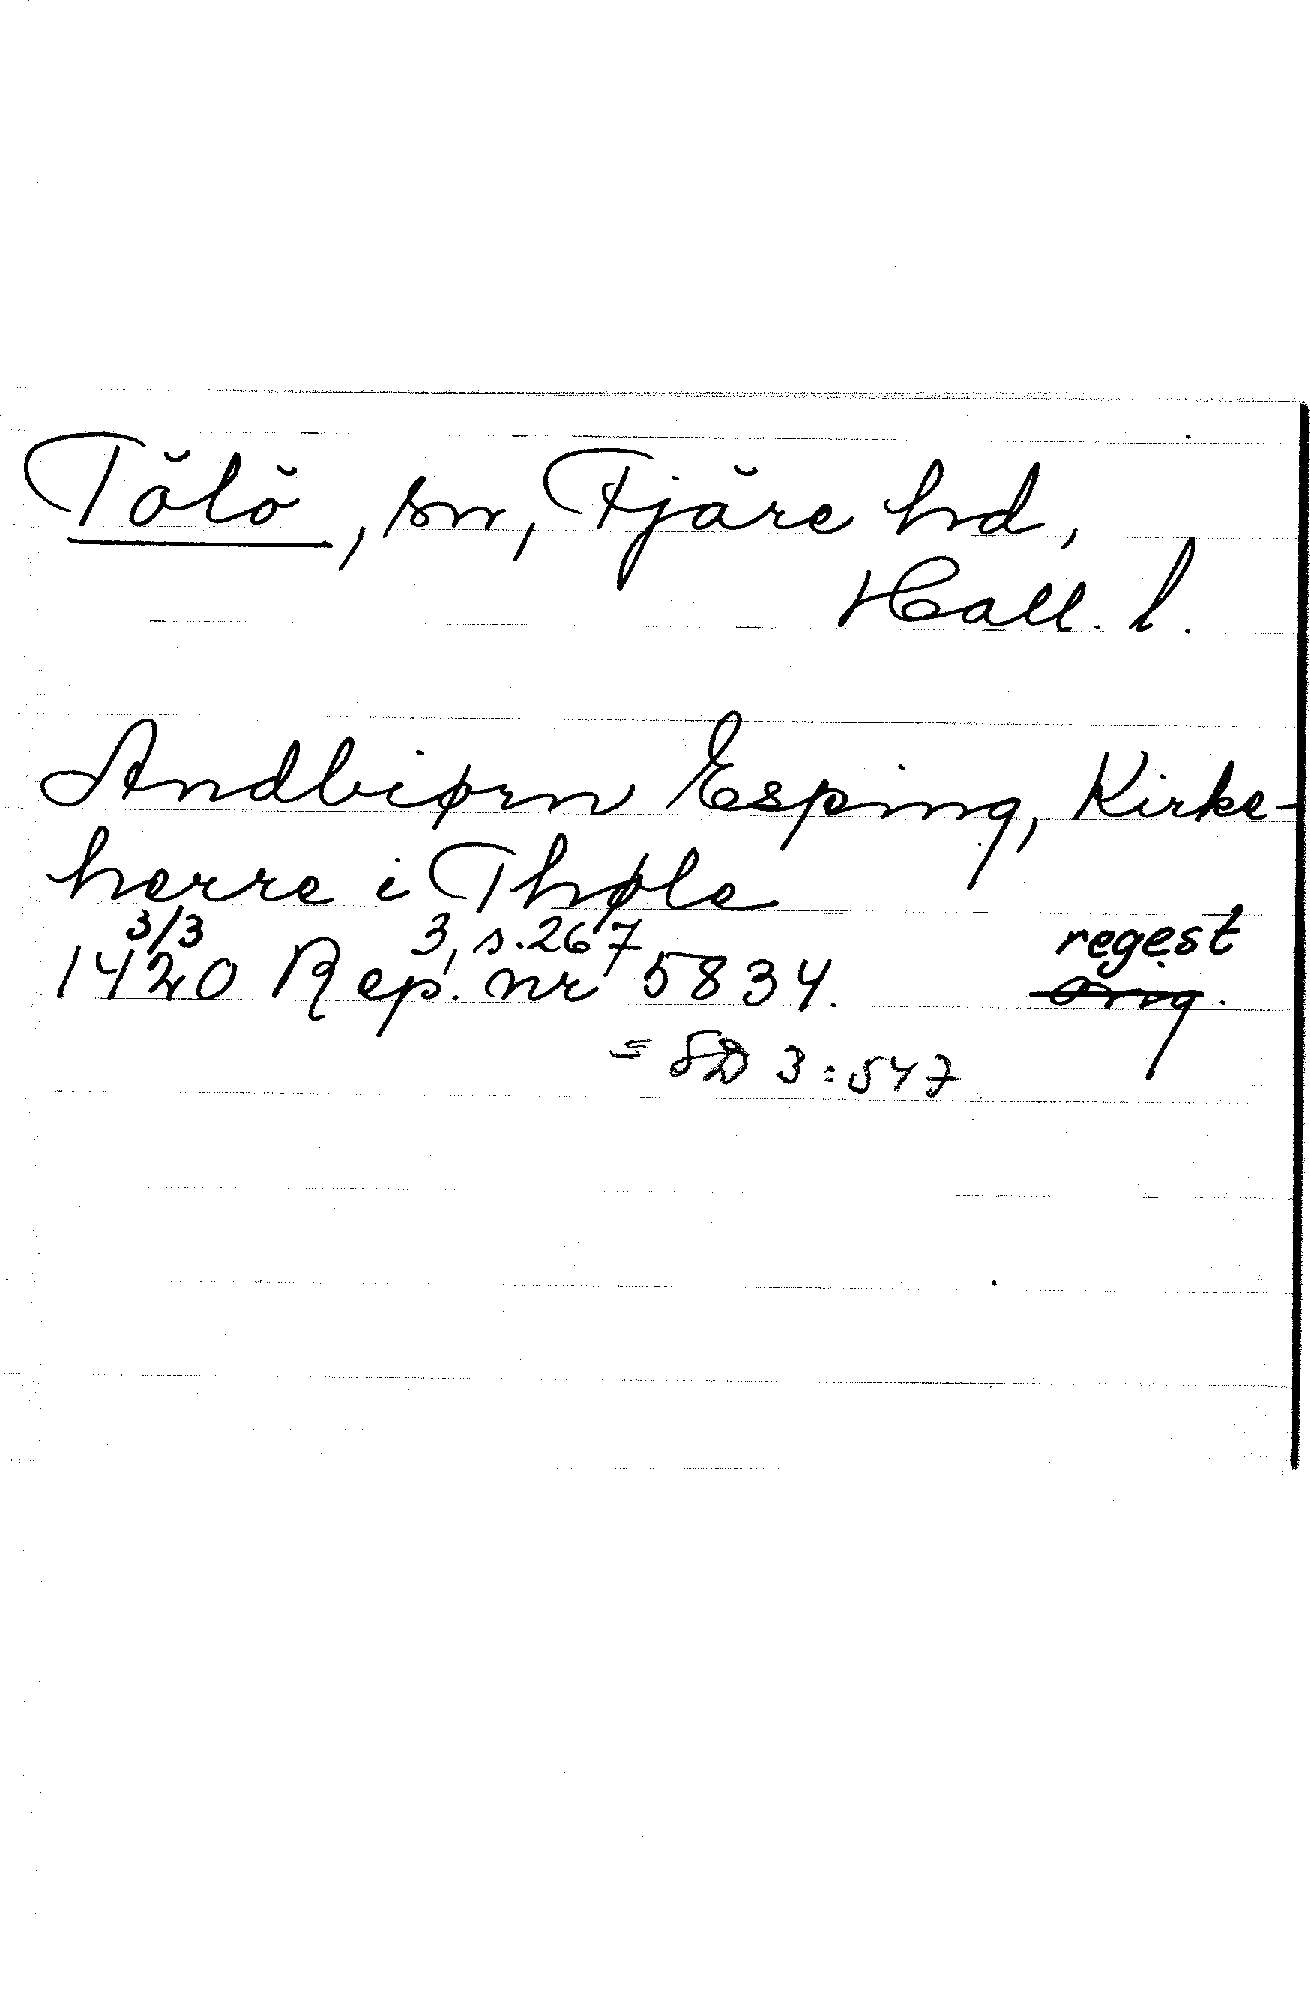 Tölö, sn, Fjäre hd,
Hall. l.
Andbiørn Esping, Kirke-
herre i Thøle
3/3 3, s. 267 regest
1420 Rep. nr 5834. Orig.
= SD 3:547